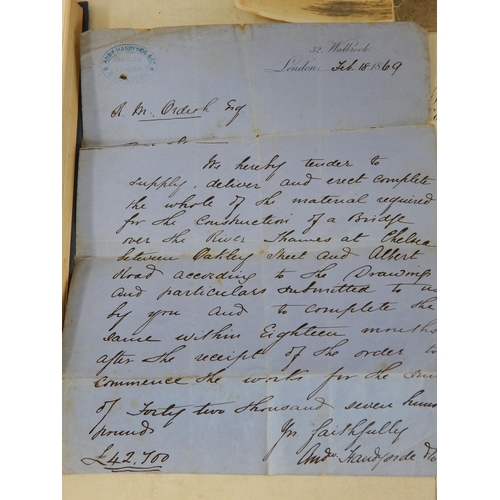 32, Walbrook
London, Feb. 18 1869
R. M. Ordish Esq
We hereby tender to
supply, deliver and erect complete
the whole of the material required
for the construction of a Bridge
over the River Thames at Chelsea
between Oakley Street and Albert
Road according to the Drawings
and particulars submitted to us
by you and to complete the
same within Eighteen months
after the receipt of the order to
commence the works for the sum
of Forty two thousand seven hun
pounds
Yrs faithfully
£42,700
Andw Handyside & Co